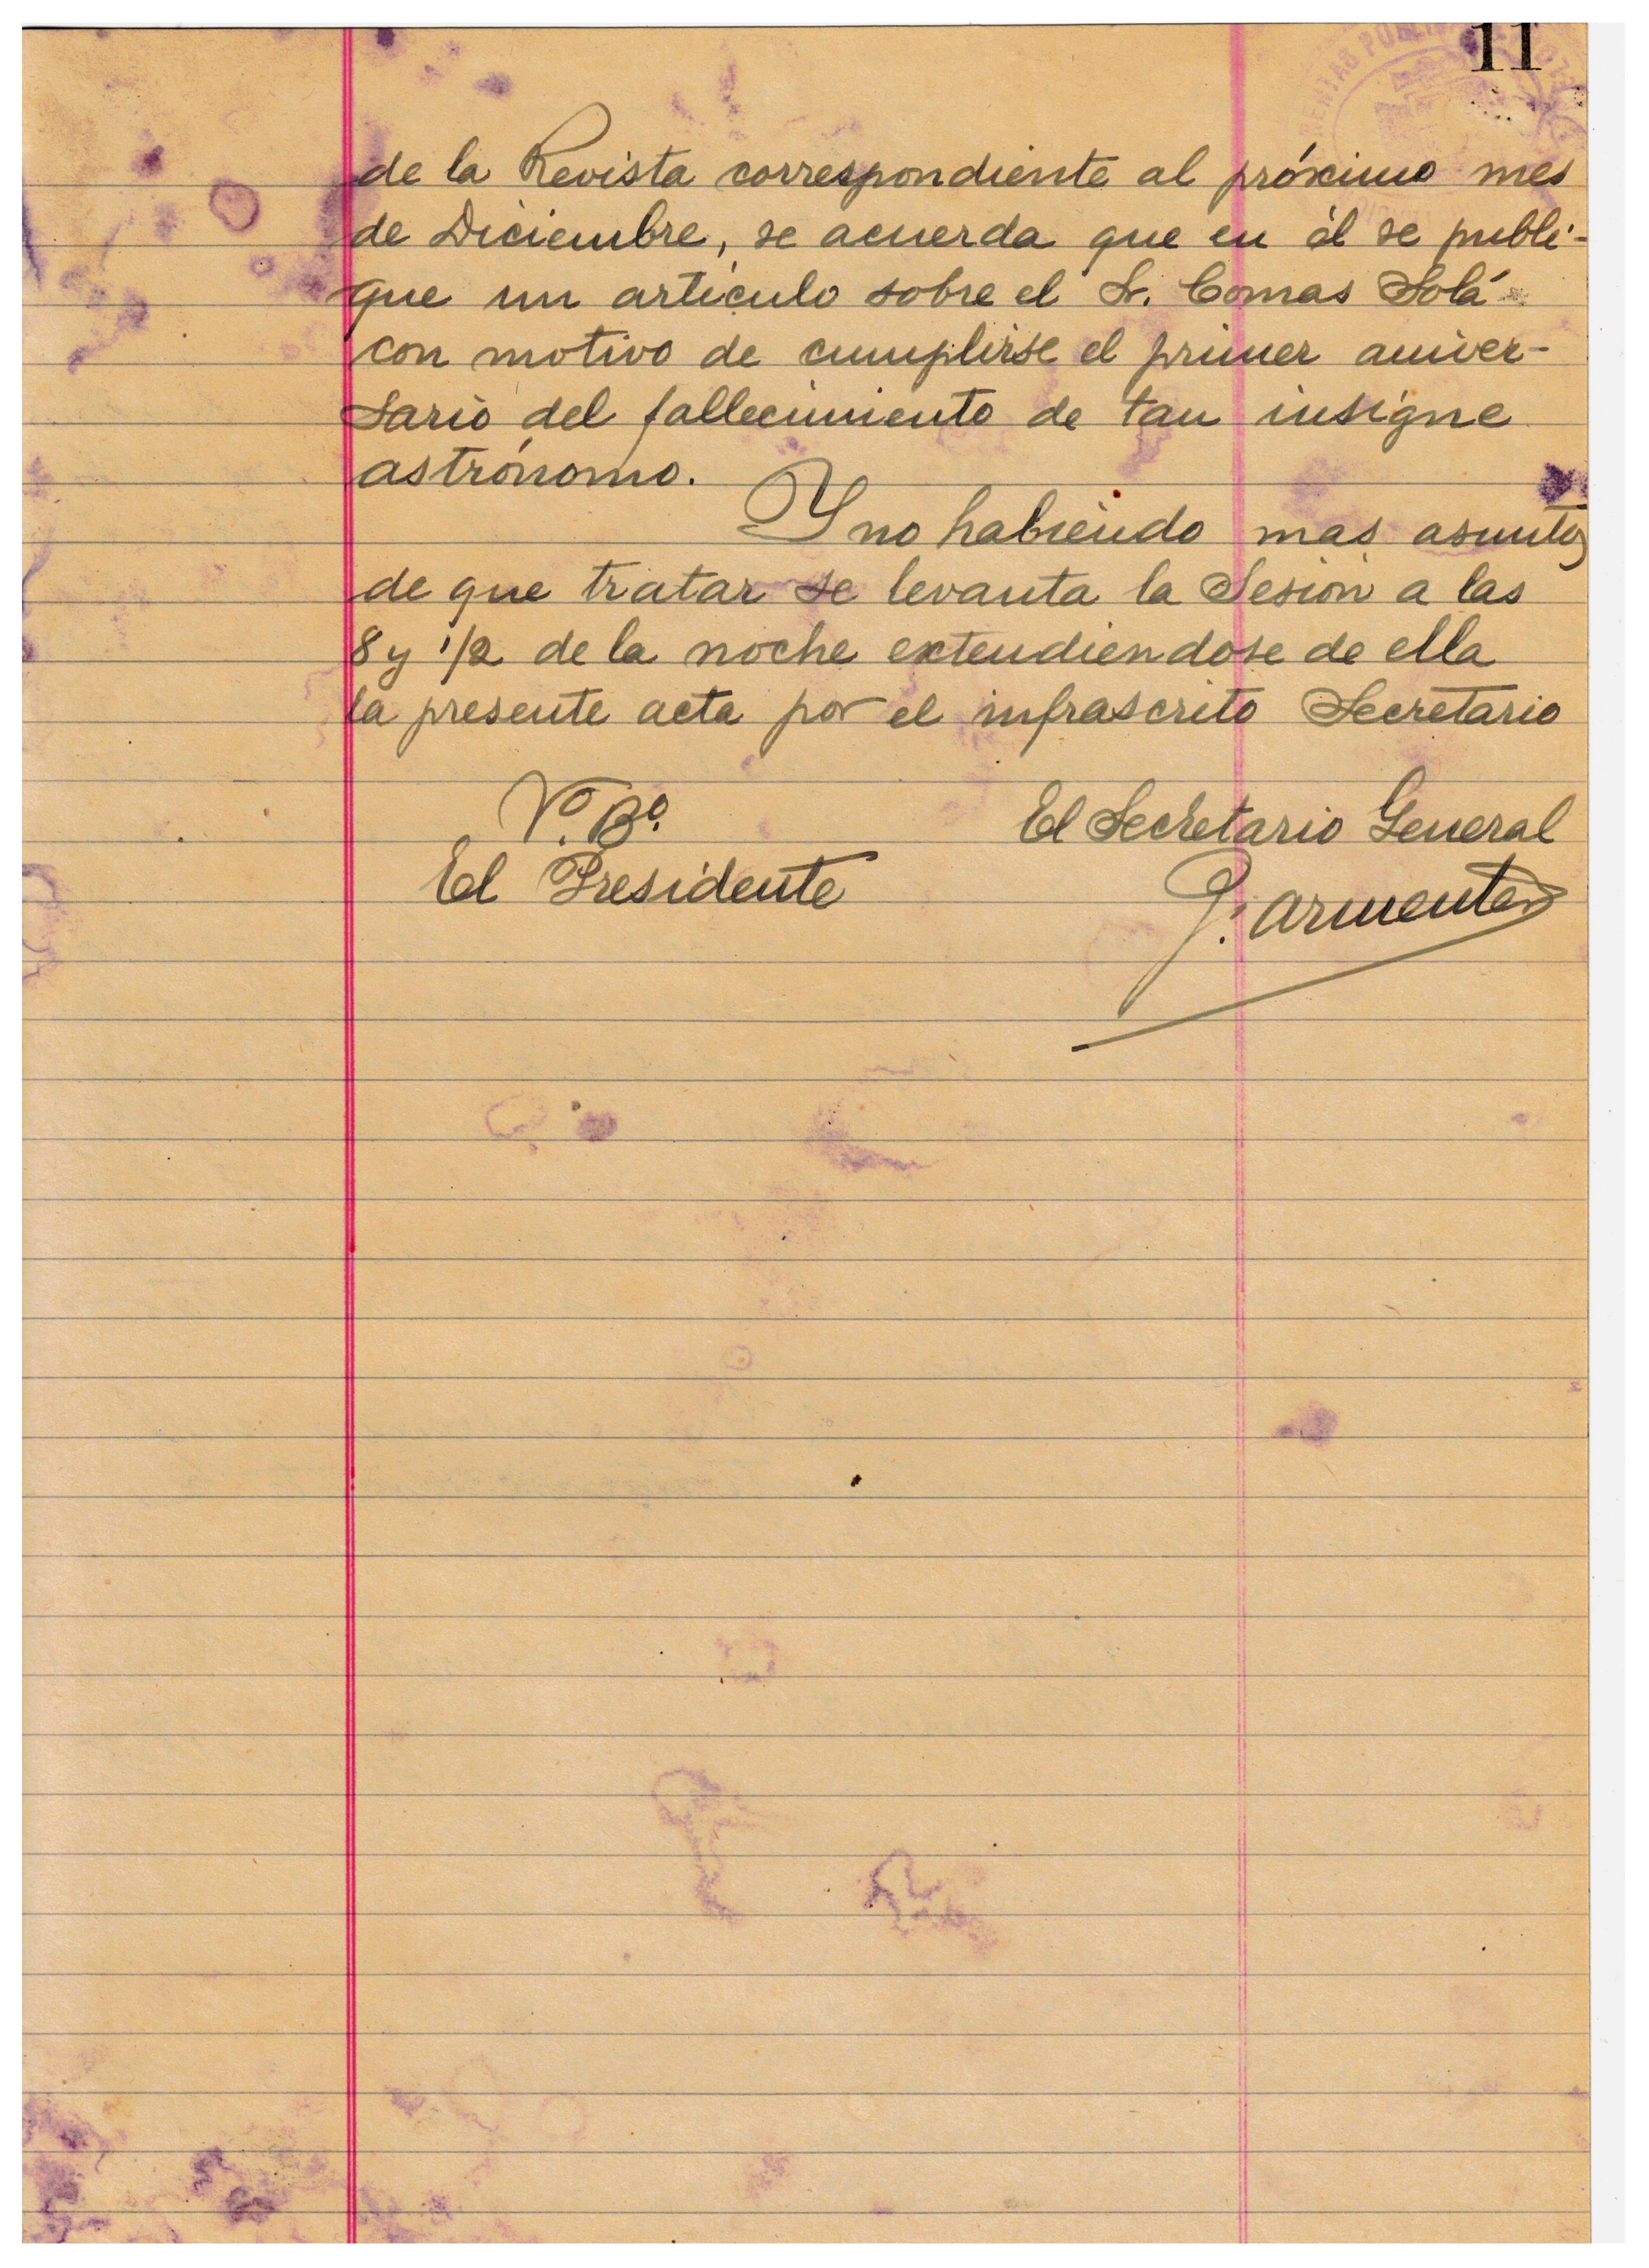 11
RENTAS PUBLI
de la Revista correspondiente al próximo mes
de Diciembre, se acuerda que en él se publi-
que un artículo sobre el Sr. Comas Solá
con motivo de cumplirse el primer aniver-
sario del fallecimiento de tan insigne
astrónomo.
Y no habiendo mas asuntos
de que tratar se levanta la Sesión a las
8 y 1/2 de la noche extendiendose de ella
la presente acta por el infrascrito Secretario
Vº. Bº.
El Secretario General
El Presidente
P. Armenter